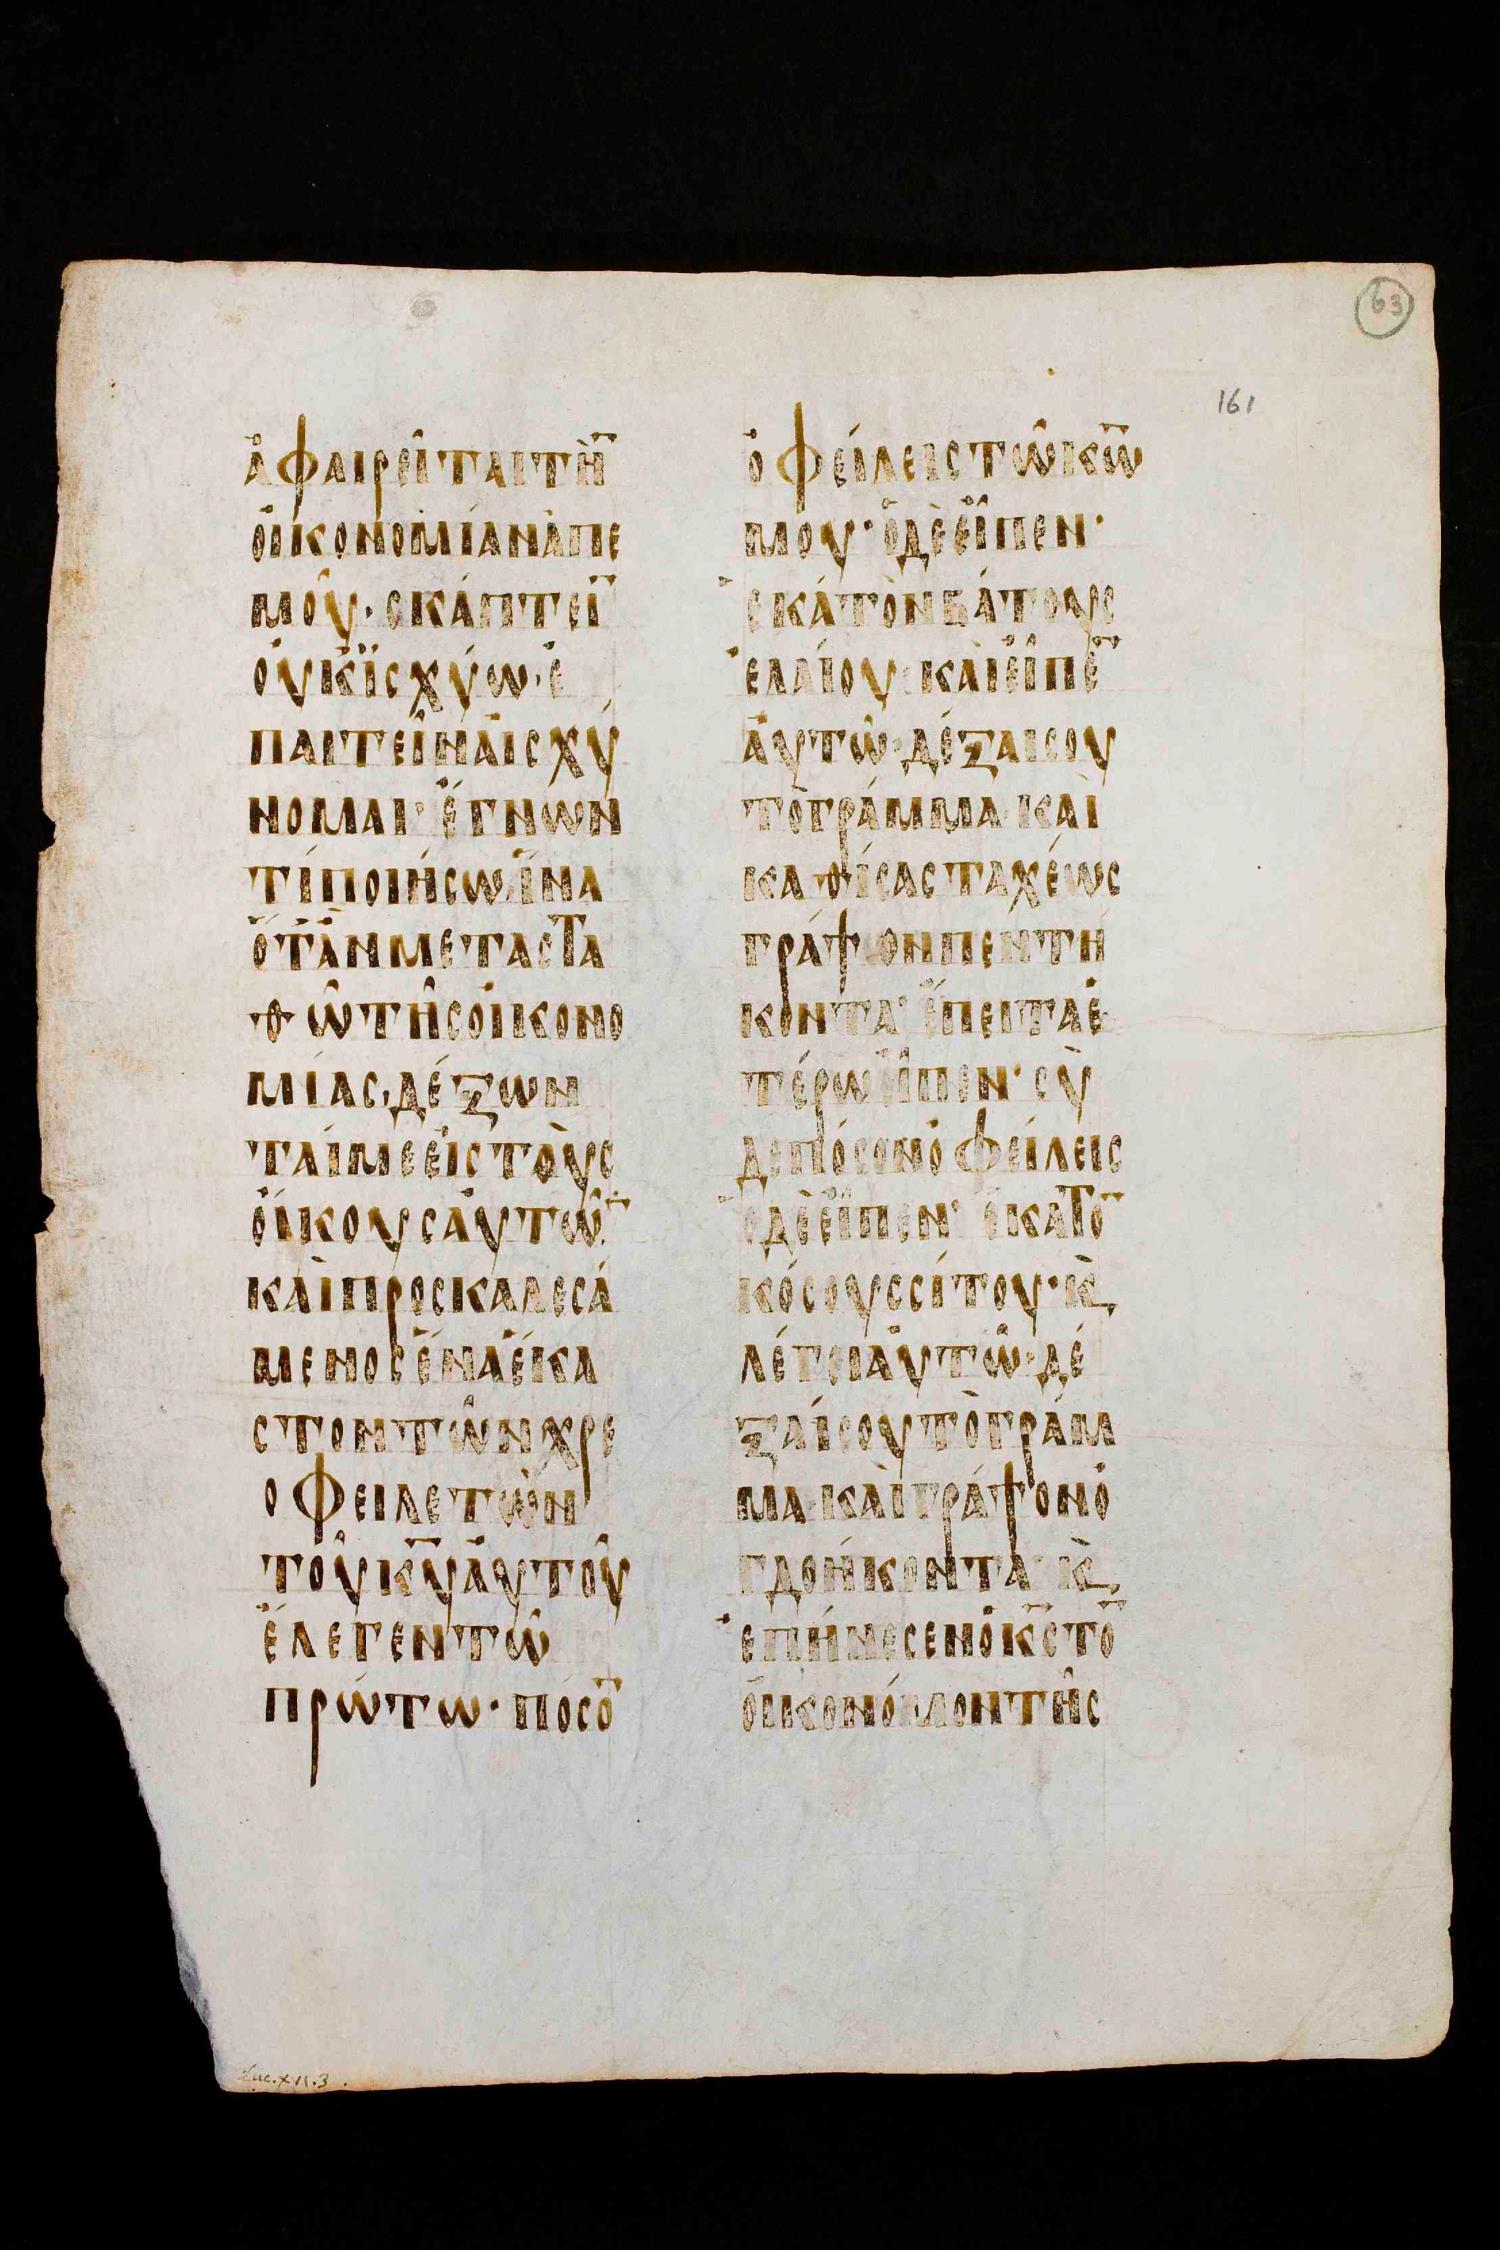 63
161
ἀφαιρεῖται τὴ̅
οἰκονομίαν ἀπ' ἐ
μοῦ· σκάπτει̅
οὐκ ἰσχύω· ἐ
παιτεῖν αἰσχύ
νομαι· ἔγνων
τί ποιήσω ἵνα
ὅταν μεταστα
θῶ τῆς οἰκονο
μίας, δέξων
ταί με εἰς τοὺς
οἴκους αὐτῶ̅·
καὶ προσκαλεσά
μενος ἕνα ἕκα
στον τῶν χρε
οφειλετῶν
τοῦ κ̅υ̅ αὐτοῦ
ἔλεγεν τῶ
πρώτω· πόσο̅
ὀφείλεις τῶ κ̅ω̅
μου· ὁ δὲ εἶπεν·
ἑκατὸν βάτους
ἐλαίου· καὶ εἶπε̅
αὐτῶ· δέξαι σου
τὸ γράμμα· καὶ
καθίσας ταχέως
γράψον πεντή
κοντα· ἔπειτα ἑ
τέρω εἶπεν· σὺ
δὲ πόσον ὀφείλεις
ὁ δὲ εἶπεν· ἑκατο̅
κόσους σίτου· κ̀
λέγει αὐτῶ· δέ
ξαί σου τὸ γράμ
μα· καὶ γράψον ὀ
γδοήκοντα· κ̀
ἐπήνεσεν ὁ κ̅ς̅ το̅
οἰκονόμον τῆς
Luc. XVI. 3.